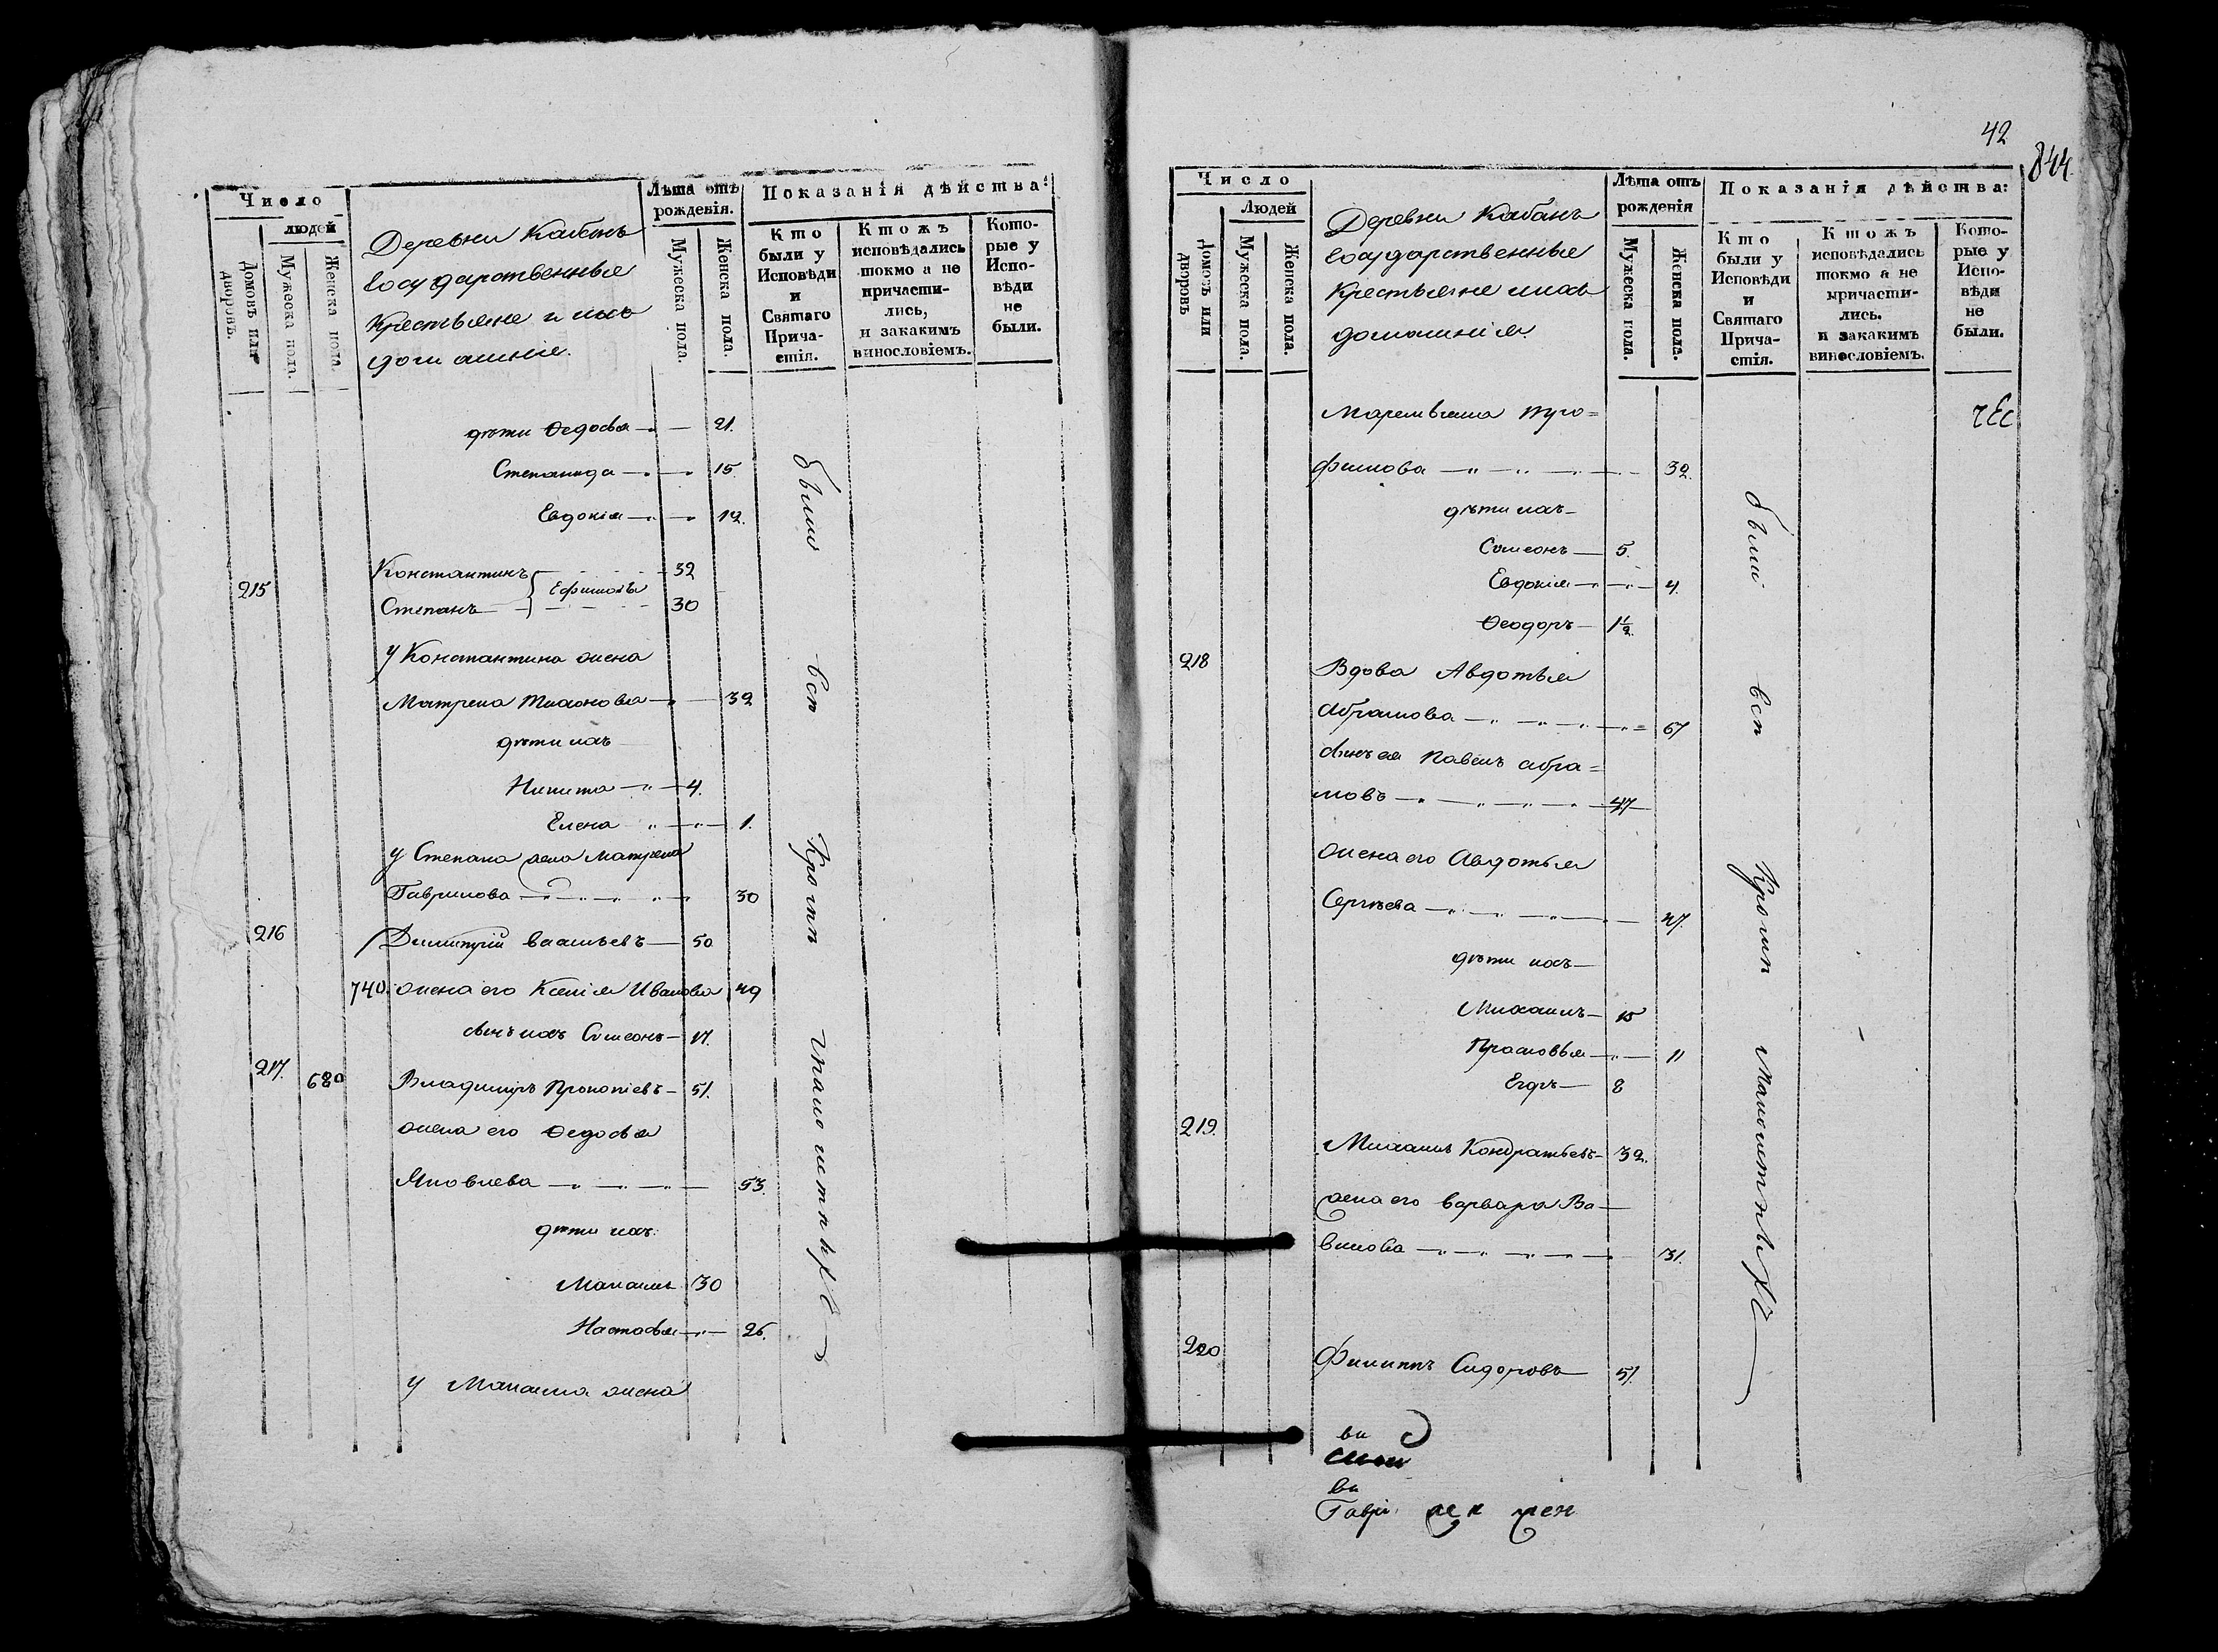 Число
людей
Домовъ или дворовъ.
Мужеска пола.
Женска пола.
Деревни Кабанъ
Государственные
Крестьяне и ихъ
домашніе.
Лѣта отъ рожденія.
Мужеска пола.
Женска пола.
Показанія дѣйства:
Кто были у Исповѣди и Святаго Прича-стія.
Ктожъ исповѣдались токмо а не причасти-лись, и закакимъ винословіемъ.
Кото-рые у Испо-вѣди не были.
дѣти Ѳедосья 21.
Степанида 15.
Евдокія 12.
215 Константинъ 32
Ефимовы
Степанъ 30
У Константина жена
Матрена Тихонова 32
дѣти ихъ
Никита 4.
Елена 1.
У Степана жена Матрена
Гаврилова 30
216 Димитрій Васильевъ 50
740. жена его Ксенія Иванова 49
сынъ ихъ Симеонъ 17.
217. 680 Владимиръ Прокопіевъ 51.
жена его Ѳедосья
Яковлева 53.
дѣти ихъ.
Михаилъ 30
Настасья 26.
У Михаила жена
были всѣ Кромѣ малолѣтныхъ
42
844.
Число
Людей
Домовъ или дворовъ
Мужеска пола.
Женска пола.
Деревни Кабанъ
Государственные
Крестьяне ихъ
домашнія.
Лѣта отъ рожденія
Мужеска пола.
Женска пола.
Показанія дѣйства:
Кто были у Исповѣди и Святаго Прича-стія.
Ктожъ исповѣдались токмо а не причасти-лись. и закакимъ винословіемъ.
Кото-рые у Испо-вѣди не были.
Маремьяна Тро=
фимова 32.
дѣти ихъ
Симеонъ 5.
Евдокія 4.
Ѳеодоръ 1½.
218 Вдова Авдотья
Абрамова 67
сынъ ея Павелъ Абра=
мовъ 47
жена его Авдотья
Сергѣева 47.
дѣти ихъ
Михаилъ 15
Прасковья 11
Егоръ 8
219. Михаилъ Кондратьевъ 32.
жена его Варвара Ва
вилова 31.
220 Филиппъ Сидоровъ 51.
были всѣ Кромѣ малолѣтныхъ
ви
ви
Гаври